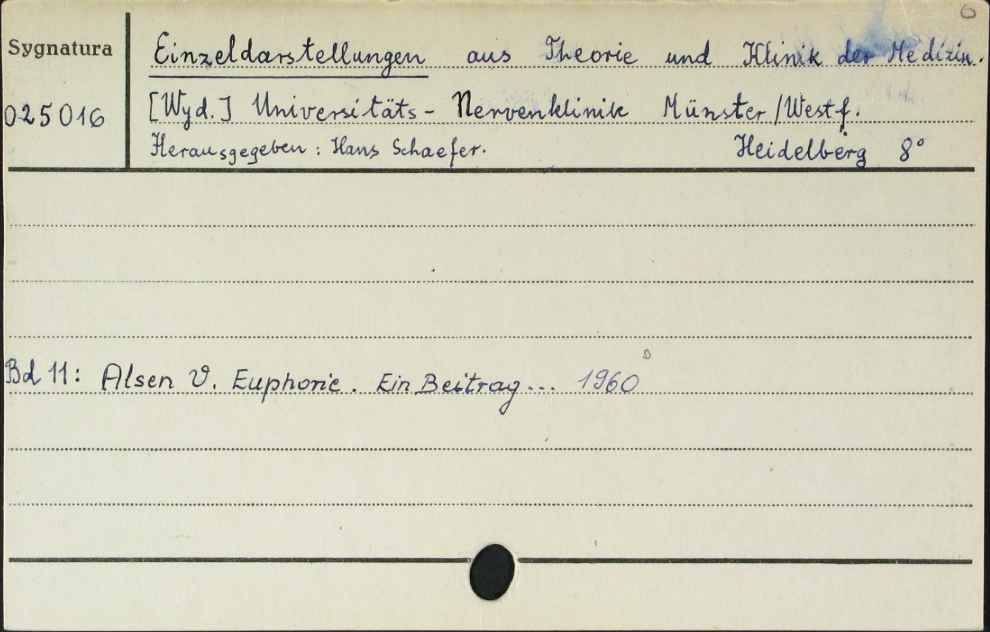 6
Sygnatura
025016
Einzeldarstellungen aus Theorie und Klinik der Medizin.
[Wyd.] Universitäts-Nervenklinik Münster/Westf.
Herausgegeben: Hans Schaefer. Heidelberg 8°
Bd 11: Alsen V. Euphorie. Ein Beitrag... 1960